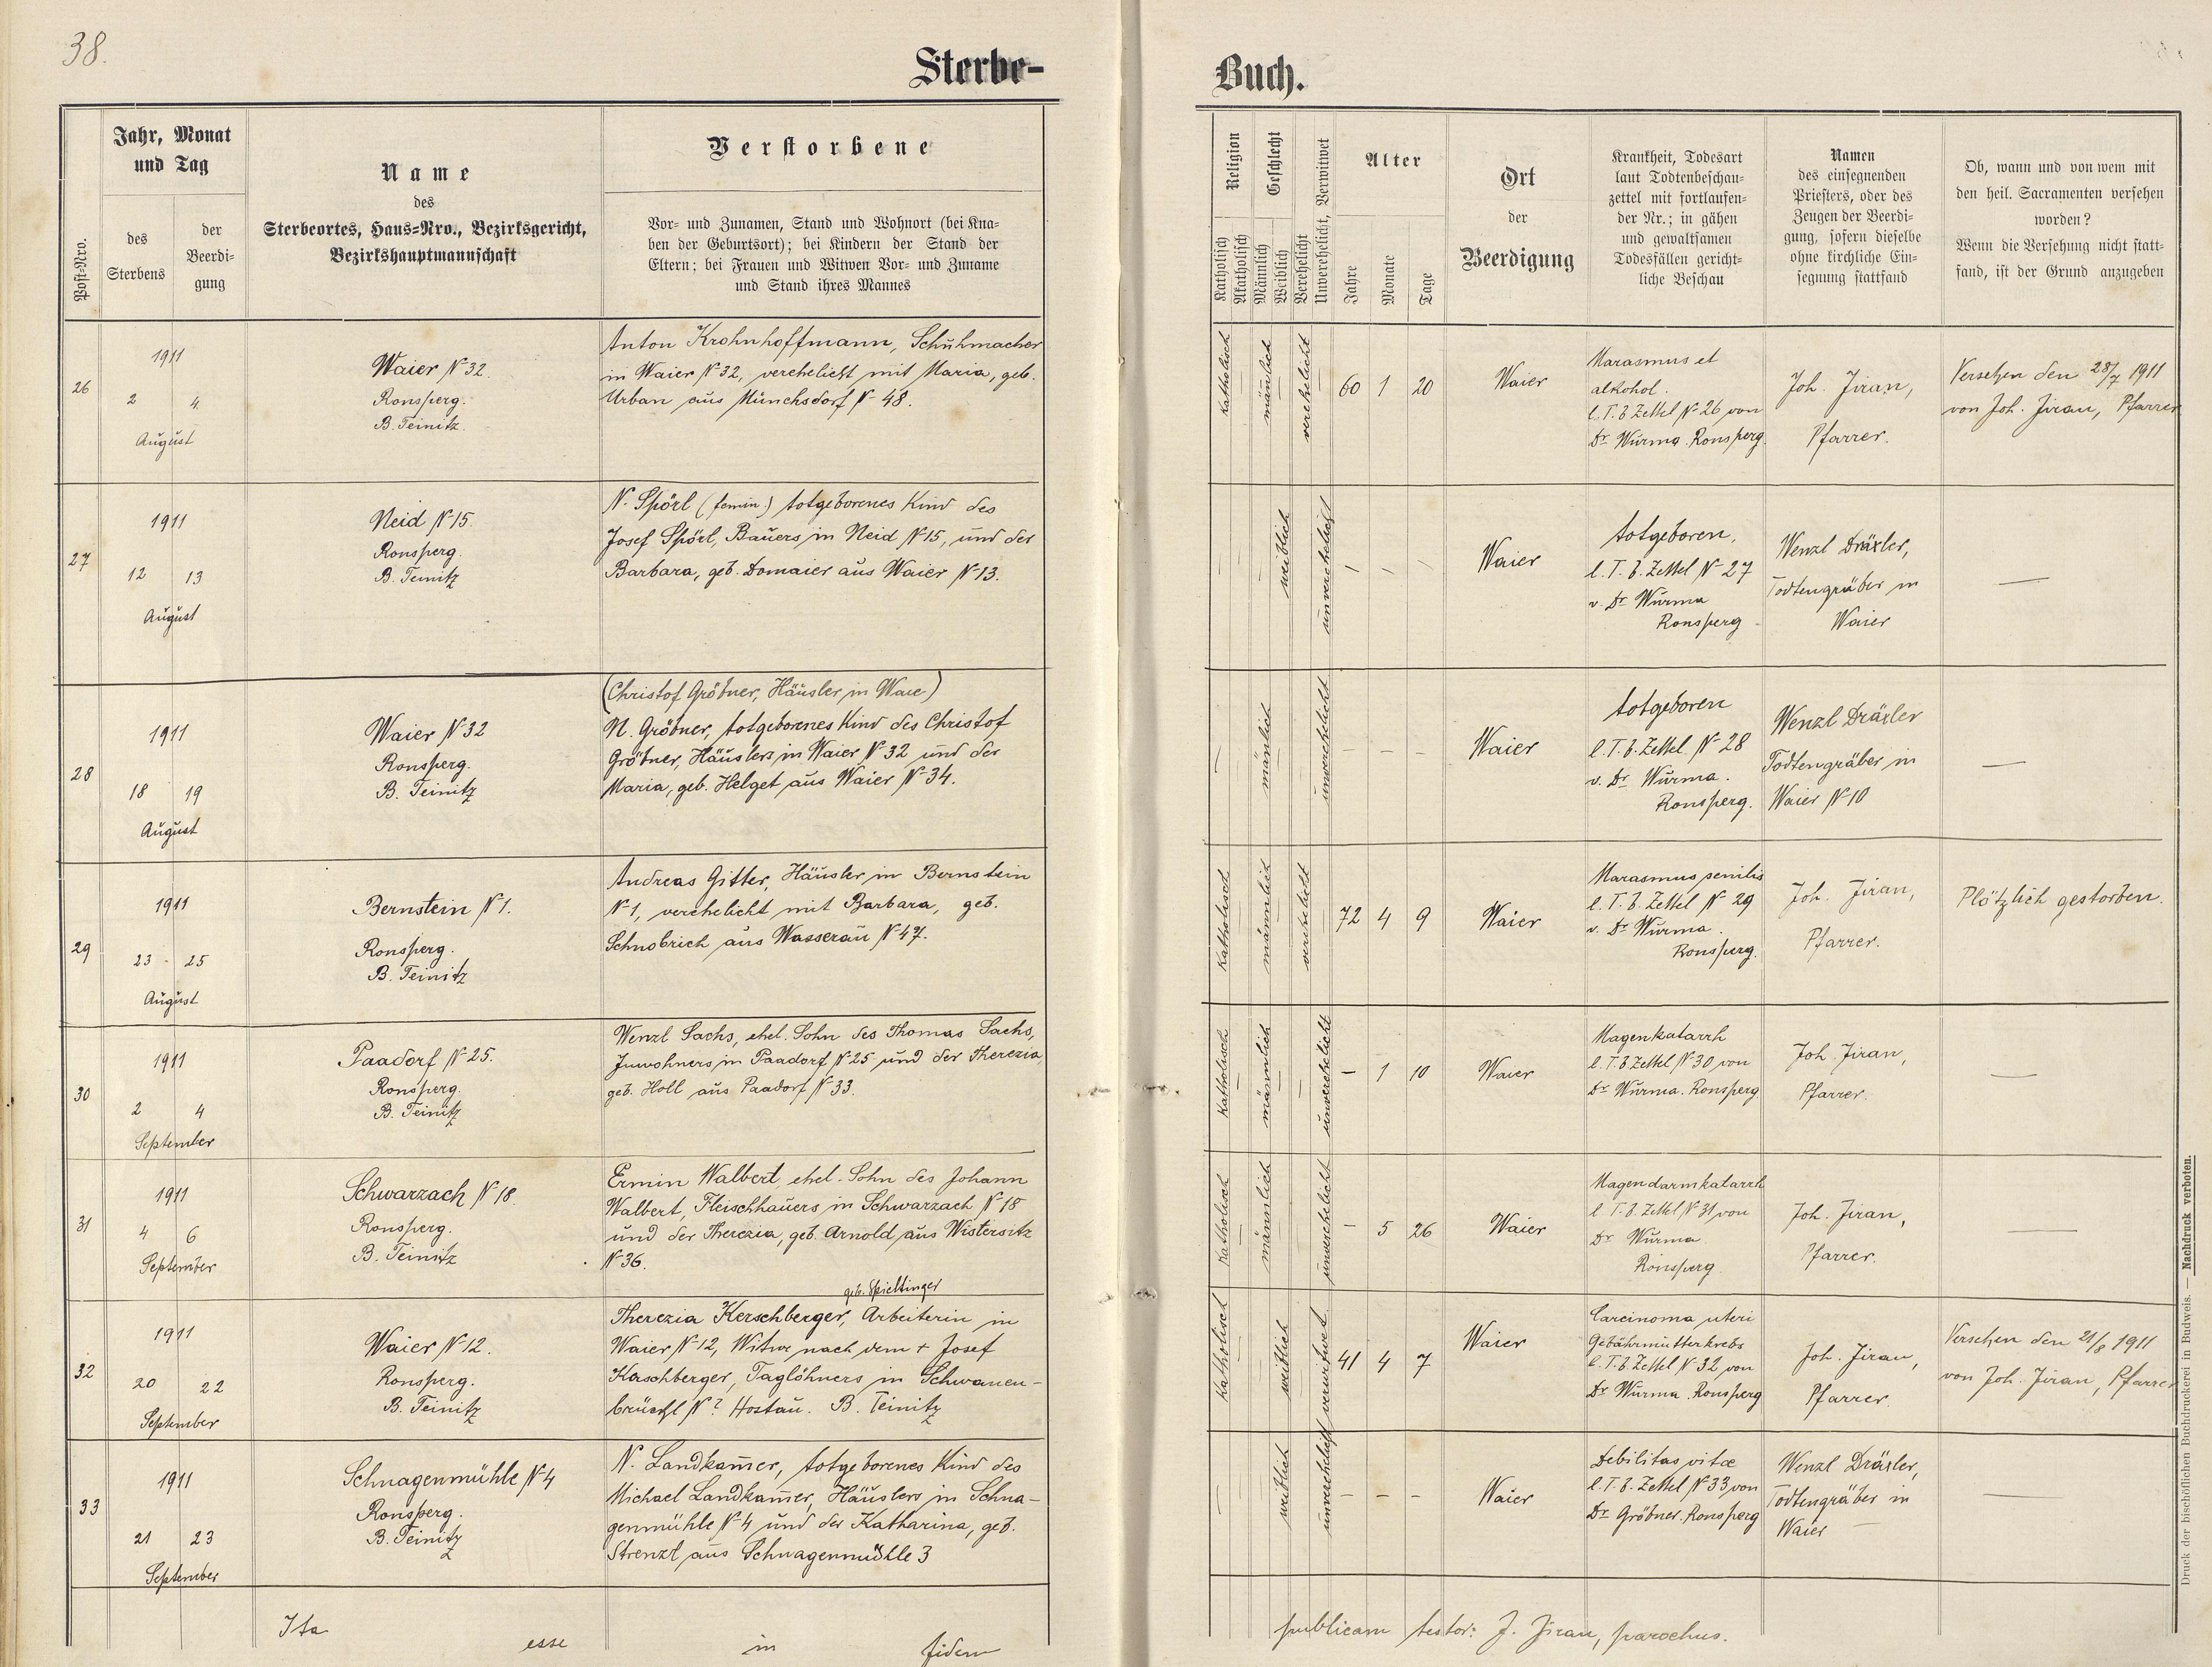 38.
Sterbe-
Buch.
Post-Nro.
Jahr, Monat
und Tag
des
Sterbens
der
Beerdi-
gung
Name
des
Sterbeortes, Haus-Nro., Bezirksgericht,
Bezirkshauptmannschaft
Verstorbene
Vor- und Zunamen, Stand und Wohnort (bei Kna-
ben der Geburtsort); bei Kindern der Stand der
Eltern; bei Frauen und Witwen Vor- und Zuname
und Stand ihres Mannes
Religion
Katholisch
Akatholisch
Geschlecht
Männlich
Weiblich
Verehelicht
Unverehelicht, Verwitwet
Alter
Jahre
Monate
Tage
Ort
der
Beerdigung
Krankheit, Todesart
laut Todtenbeschau-
zettel mit fortlaufen-
der Nr.; in gähen
und gewaltsamen
Todesfällen gericht-
liche Beschau
Namen
des einsegnenden
Priesters, oder des
Zeugen der Beerdi-
gung, sofern dieselbe
ohne kirchliche Ein-
segnung stattfand
Ob, wann und von wem mit
den heil. Sacramenten versehen
worden?
Wenn die Versehung nicht statt-
fand, ist der Grund anzugeben
26
1911
2 4.
August
Waier № 32.
Ronsperg.
B. Teinitz.
Anton Krohnhoffmann, Schuhmacher
in Waier № 32, verehelicht mit Maria, geb.
Urban aus Münchsdorf № 48.
katholisch
mänlich
verehelicht
60 1 20
Waier
Marasmus et
alkohol.
l. T. b. Zettel № 26 von
Dr Wurma. Ronsperg.
Joh. Jiran,
Pfarrer.
Versehen den 28/7 1911
von Joh. Jiran, Pfarrer
27
1911
12 13
August
Neid № 15.
Ronsperg.
B. Teinitz
N. Spörl (femin.) totgeborenes Kind des
Josef Spörl, Bauers in Neid № 15, und der
Barbara, geb. Domaier aus Waier № 13.
weiblich
unverehelicht
Waier
totgeboren,
l. T. b. Zettel № 27
v. Dr Wurma
Ronsperg
Wenzl Dräxler,
Todtengräber in
Waier
—
28
1911
18 19
August
Waier № 32
Ronsperg.
B. Teinitz
(Christof Gröbner, Häusler in Waie)
N. Gröbner, totgeborenes Kind des Christof
Gröbner, Häuslers in Waier № 32 und der
Maria, geb. Helget aus Waier № 34.
mänlich
unverehelicht
- - -
Waier
totgeboren
l. T. b. Zettel № 28
v. Dr Wurma.
Ronsperg.
Wenzl Dräxler
Todtengräber in
Waier № 10
—
29
1911
23 25
August
Bernstein № 1.
Ronsperg.
B. Teinitz
Andreas Gitter, Häusler in Bernstein
№ 1, verehelicht mit Barbara, geb.
Schnobrich aus Wasserau № 47.
Katholisch
männlich
verehelicht
72 4 9
Waier
Marasmus senilis
l. T. b. Zettel № 29
v. Dr Wurma.
Ronsperg.
Joh. Jiran,
Pfarrer.
Plötzlich gestorben.
30
1911
2 4
September
Paadorf № 25.
Ronsperg.
B. Teinitz
Wenzl Sachs, ehel. Sohn des Thomas Sachs,
Inwohners in Paadorf № 25 und der Therezia,
geb. Holl aus Paadorf № 33.
Katholisch
männlich
unverehelicht
- 1 10
Waier
Magenkatarrh
l. T. b. Zettel № 30 von
Dr Wurma. Ronsperg
Joh. Jiran,
Pfarrer.
—
31
1911
4 6
September
Schwarzach № 18.
Ronsperg.
B. Teinitz
Ermin Walbert, ehel. Sohn des Johann
Walbert, Fleischhauers in Schwarzach № 18
und der Therezia, geb. Arnold aus Wistersitz
№ 36.
Katholisch
männlich
unverehelicht
- 5 26
Waier
Magendarmkatarrh
l T. b. Zettel № 31 von
Dr Wurma
Ronsperg
Joh. Jiran,
Pfarrer.
—
32
1911
20 22
September
Waier № 12.
Ronsperg.
B. Teinitz
geb. Spichtinger
Therezia Kerschberger, Arbeiterin in
Waier № 12, Witwe nach dem + Josef
Kerschberger, Taglöhners in Schwanen-
brückl № ? Hostau. B. Teinitz
Katholisch
weiblich
verwitwet
41 4 7
Waier
Carcinoma uteri
Gebährmutterkrebs
l. T. b. Zettel № 32 von
Dr Wurma. Ronsperg
Joh. Jiran,
Pfarrer.
Versehen den 21/8 1911
von Joh. Jiran, Pfarrer
33
1911
21 23
September
Schnagenmühle № 4
Ronsperg.
B. Teinitz
N. Landkam̄er, totgeborenes Kind des
Michael Landkam̄er, Häuslers in Schna-
genmühle № 4 und der Katharina, geb.
Strenzl aus Schnagenmühle 3
weiblich
unverehelicht
- - -
Waier
Debilitas vitæ
l. T. b. Zettel № 33 von
Dr Gröbner. Ronsperg
Wenzl Dräxler,
Todtengräber in
Waier —
—
Ita esse in fidem publicam testor: J. Jiran, parochus.
Druck der bischöflichen Buchdruckerei in Budweis. — Nachdruck verboten.